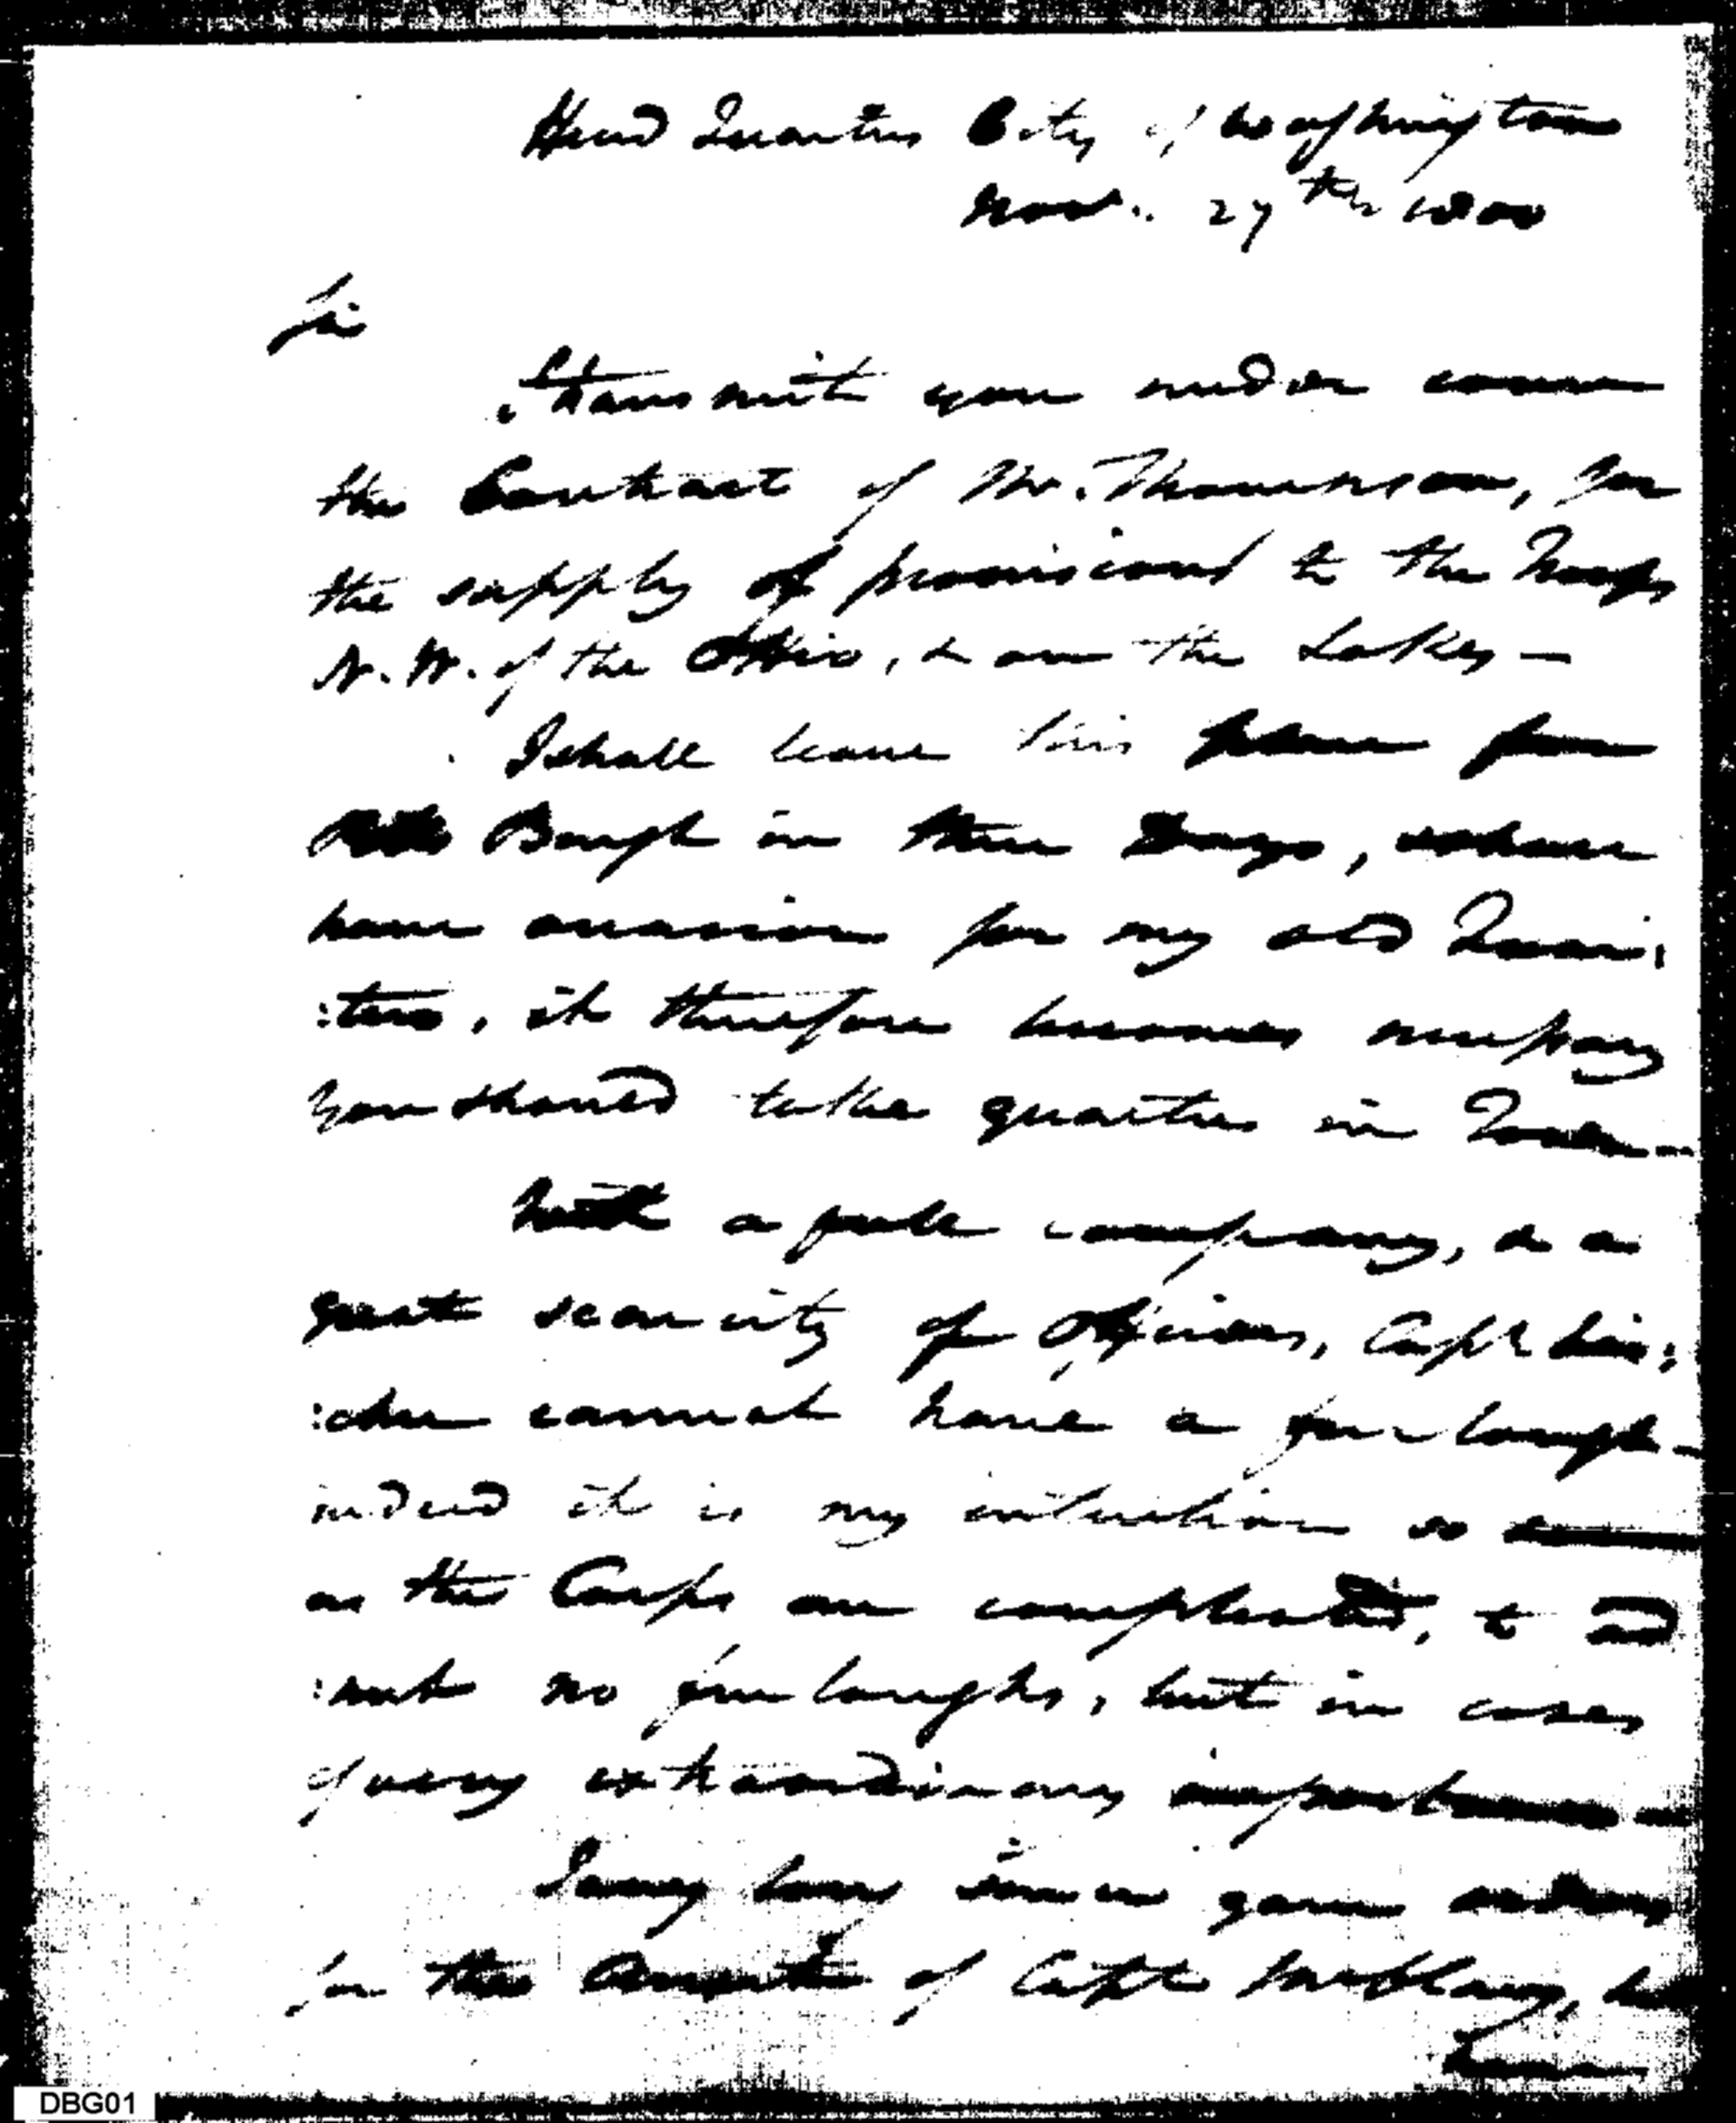 Head Quarters City of Washington
Nov. 27th 1800
Sir
I transmit you under cover
the Contract of Mr. Thompson, for
the supply of provisions to the Troops
N. W. of the Ohio, & on the Lakes —
I shall leave this place for
Pitts Burgh in three Days, & shall
have occasion for my old Quar:
:ters, it therefore becomes necessary
you should take quarters in Town —
With a full company, & a
great scarcity of Officers, Capt
cannot have a furlough —
indeed it is my intention so soon
as the Corps are completed, to ad
:mit no furloughs, but in cases
of very extraordinary importance —
I long since gave orders
for the Arrest of Capt
DBG01